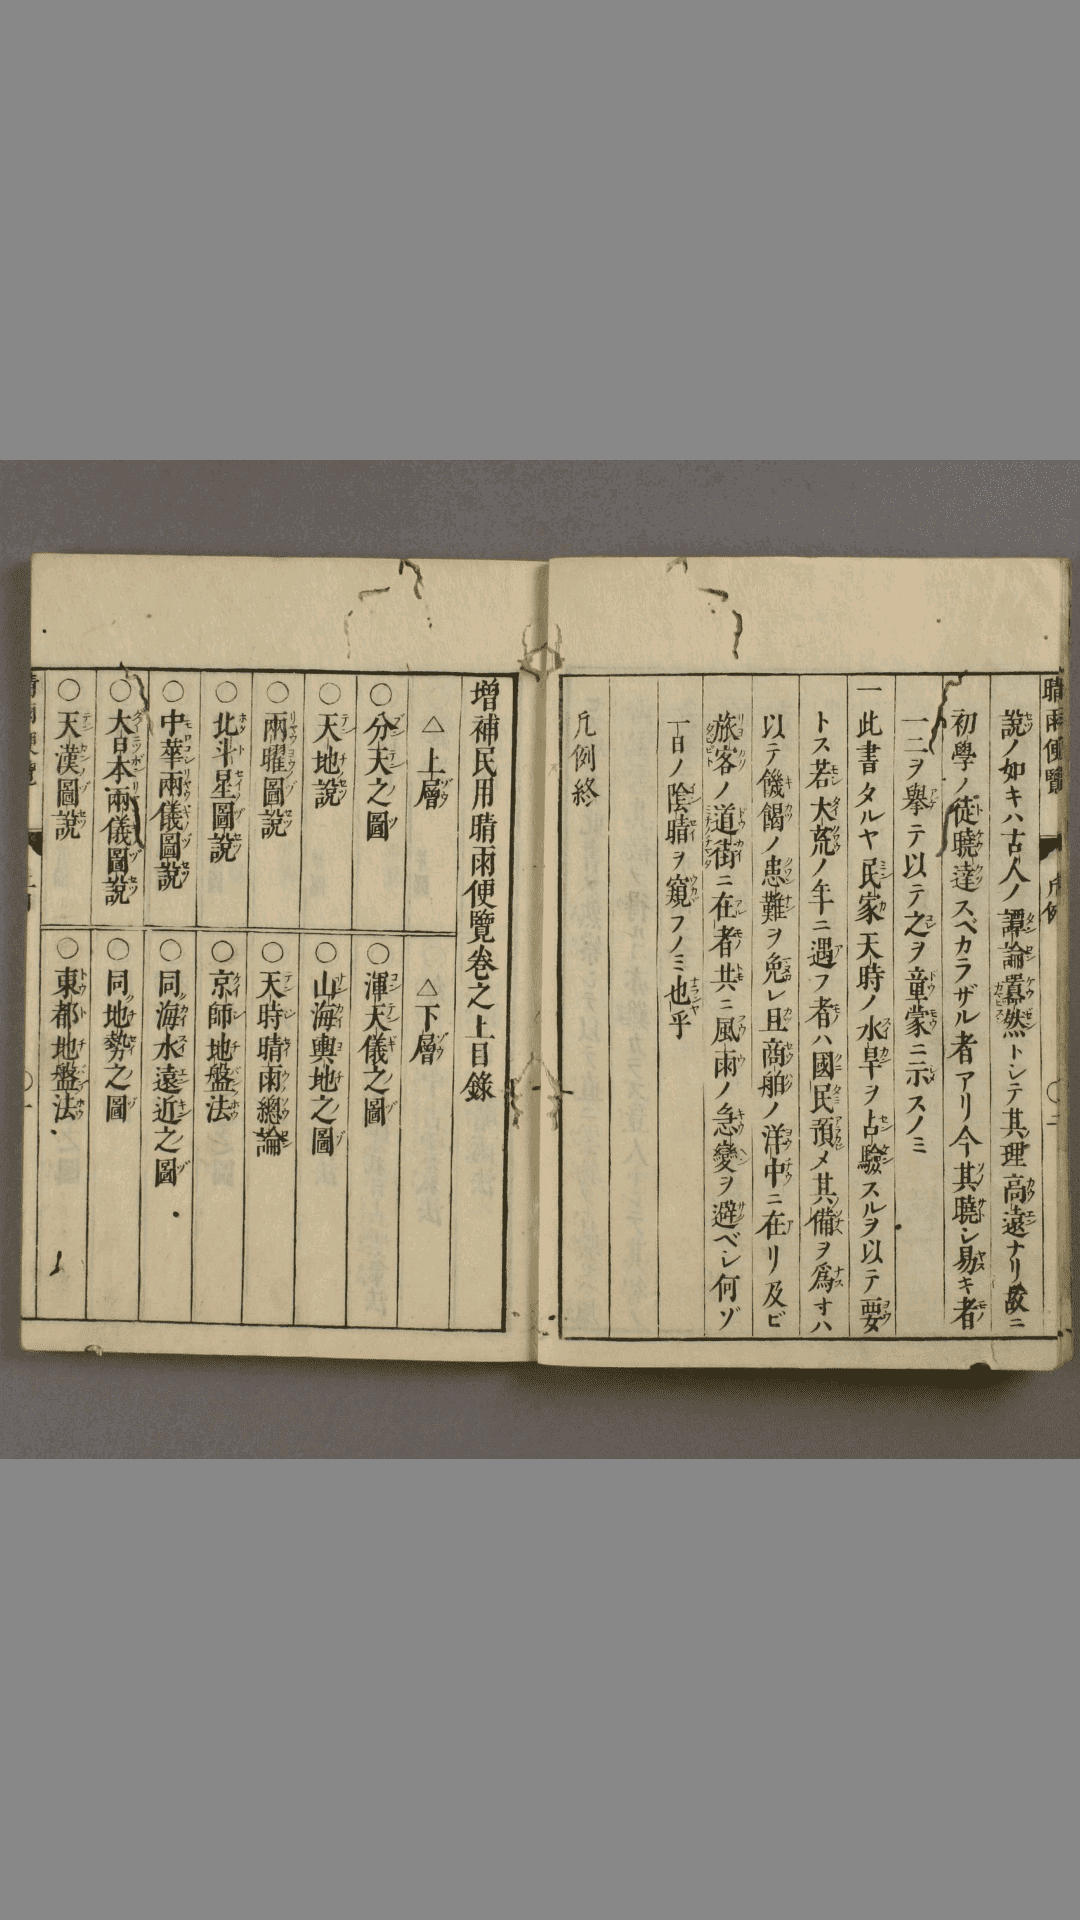 晴雨便覽
凡例
說ノ如キハ古人ノ譚論囂然トシテ其理高遠ナリ故ニ
初學ノ徒曉達スベカラザル者アリ今其曉シ易キ者
一二ヲ擧テ以テ之ヲ童蒙ニ示スノミ
一此書タルヤ民家天時ノ水旱ヲ占驗スルヲ以テ要
トス若大荒ノ年ニ遇フ者ハ國民預メ其備ヲ爲サハ
以テ饑餲ノ患難ヲ免レ且商舶ノ洋中ニ在リ及ビ
旅客ノ道街ニ在者共ニ風雨ノ急變ヲ避ベシ何ゾ
一日ノ陰晴ヲ窺フノミ也乎
凡例終
增補民用晴雨便覽卷之上目錄
△上層
○分天之圖
○天地說
○兩曜圖說
○北斗星圖說
○中華兩儀圖說
○大日本兩儀圖說
○天漢圖說
△下層
○渾天儀之圖
○山海輿地之圖
○天時晴雨總論
○京師地盤法
○同海水遠近之圖
○同地勢之圖
○東都地盤法